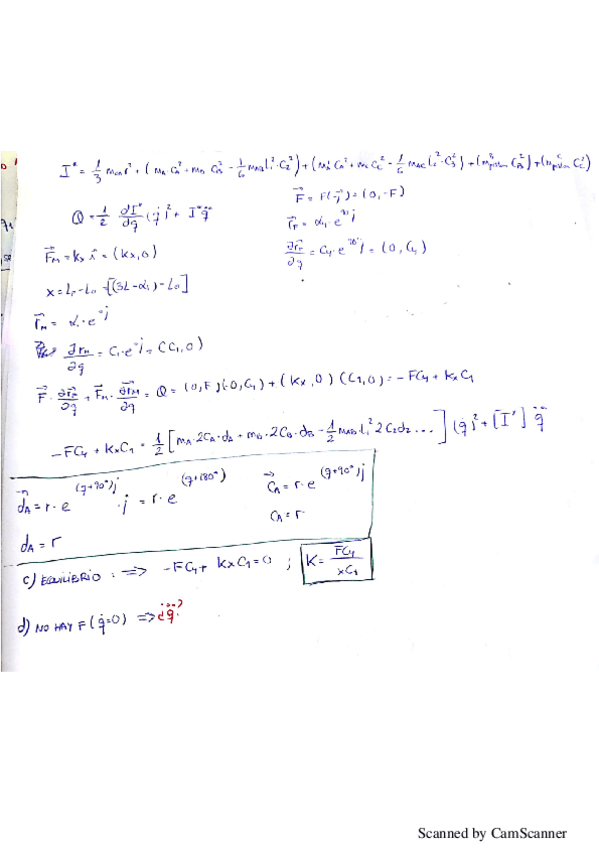 I* = 1/3 m r² + (mA·CA² + mB·CB² - 1/6 mAB l²·C2²) + (mA·CA² + mC CC² - 1/6 mAC l²·C3²) + (m pistón CB²) + (m pistón CC²)
F⃗ = F(-j) = (0, -F)
Q = 1/2 dI*/dq (q̇)² + I* q̈
∂rF/∂q = C4·e^90°j = (0, C4)
F⃗M = Kx i⃗ = (Kx, 0)
x = LF - L0 = [(3L - α1) - L0]
∂rM/∂q = C1·e = (C1, 0)
F⃗ · ∂rF/∂q + F⃗M · ∂rM/∂q = Q = (0, F)(-0, C4) + (Kx, 0)(C1, 0) = -FC4 + KxC1
-FC4 + KxC1 = 1/2 [mA·2CA·dA + mB·2CB·dB - 1/2 mAB l² 2C2d2 ...] (q̇)² + [I*] q̈
d⃗A = r·e^(q+90°)j ·j = r·e^(q+180°)
C⃗A = r·e^(q+90°)j
CA = r
dA = r
c) EQUILIBRIO: ⟹ -FC4 + KxC1 = 0 ; K = FC4/xC1
d) NO HAY F (q̇=0) ⟹ ¿q̈?
Scanned by CamScanner